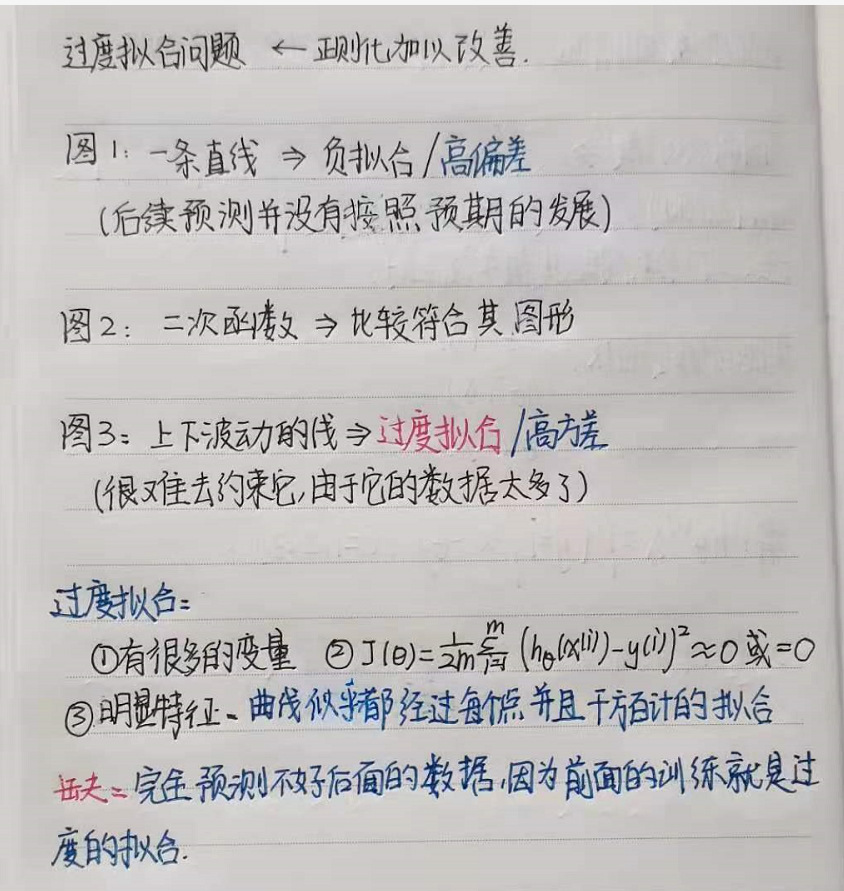 过度拟合问题 ← 正则化加以改善.
图1: 一条直线 ⇒ 负拟合/高偏差
(后续预测并没有按照预期的发展)
图2: 二次函数 ⇒ 比较符合其图形
图3: 上下波动的线 ⇒ 过度拟合/高方差
(很难去约束它,由于它的数据太多了)
过度拟合:
①有很多的变量 ② J(θ)=1/2m ∑_{i=1}^{m} (hθ(x(i))-y(i))² ≈0 或=0
③明显特征: 曲线似乎都经过每个点并且千方百计的拟合
缺失: 完全预测不好后面的数据,因为前面的训练就是过
度的拟合.